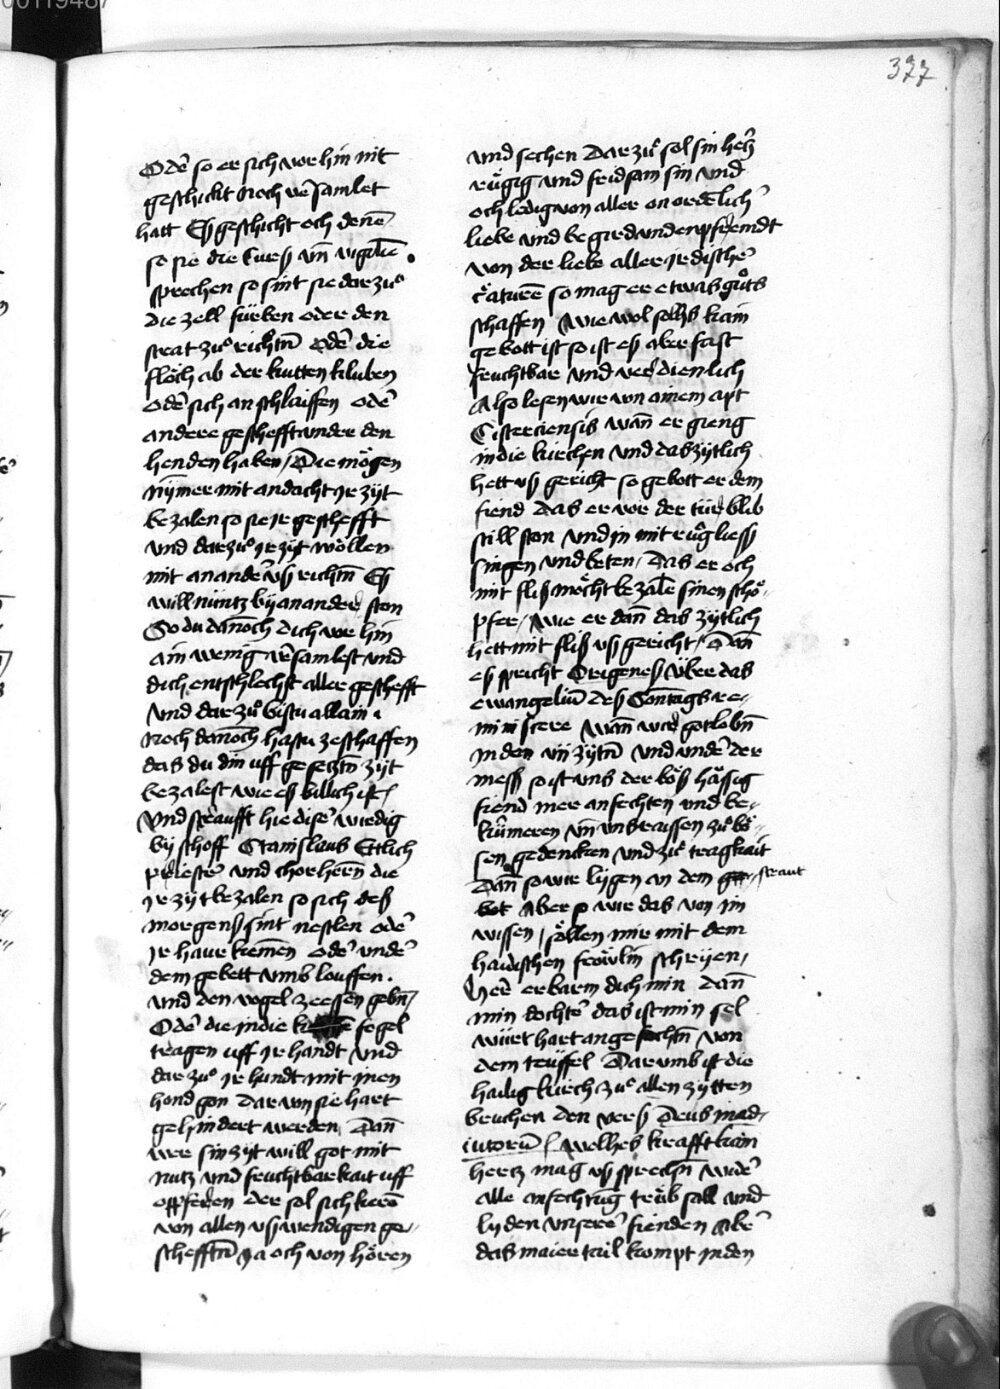 00119487
377
Odˀ so er sich vor hin nit
geschickt noch vˀsamlet
hatt Eß geschicht och denē
so sie die kurß vn̄ vigilie
sprechen so sint sie dar zuͦ
die zell fürben oder den
strat zuͦ richtn̄ odˀ die
flöch ab der kutten kluben
odˀ sich an schlaiffen odˀ
andere geschefft under den
henden haben / Die mögen
nym̄er mit andacht Jr zÿt
bezalen so sie ir geschefft
und dar zuͦ ir zÿt wöllen
mit anandˀ uß richtn̄ Eß
will nüntz bÿ anander ston
So du dan̄och dich vor hin
ain wenig vˀsamlest und
dich entschlechst aller geschefft
und dar zuͦ bistu allain .
Noch dan̄och hastu ze schaffen
das du din uff gesetztn̄ zÿt
bezalest wie eß billich ist /
Und strauft hie disˀ wirdig
bÿschoff Stanislaus Ettlich
priestˀ und chorherēn die
ir zÿt bezalen so sich deß
morgenß sint nestlen odˀ
ir haur kem̄en odˀ undˀ
dem gebett umb louffen .
und den vogel ze essen gebn̄ /
Odˀ die in die fogel
tragen uff ir handt und
dar zuͦ ir hundt mit inen
hond gon dar von sie hart
gehindert werden Dan̄
wer sin zÿt will got mit
nutz und fruchtbarkait uff
opfferen der sol sich kerē
von allen ußwendigen ge⸗
schefftn̄ ya och von hören
und sechen Dar zuͦ sol sin hertz
rügig und fridsam sin und
och ledig von aller onordēlichˀ
liebe und begird und enpfremdt
von der liebe aller irdischˀ
c̄aturē so mag er etwas guͦts
schaffen Wie wol solhs kain
gebott ist so ist eß aber fast
fruchtbar und verdienlich
Also lesen wir von ainem apt
Cisterciensis wan̄ er gieng
in die kirchen und das zÿtlich
hett uß gericht so gebott er dem
fiend das er vor der tür blib
still ston und in mit ruͦ ließ
singen und beten / Das er och
mit fliß möcht bezalē sinen schö⸗
pfer / wie er dan̄ das zÿtlich
hett mit fliß uß gericht / Dan̄
eß spricht Origeneß über das
ewangeliū deß Sontags re⸗
miniscere wan̄ wir got lobn̄
in den vij zÿtn̄ und undˀ der
mess so ist uns der böß hässig
fiend mer anfechten und be⸗
küm̄eren vn̄ uns raissen zuͦ bö⸗
sen gedencken und zuͦ tragkait
Dan̄ so wir lÿgen an dem straut
bot Aber so wir das von im
wissen / söllen wir mit dem
haidischen fröwlin schrÿen /
Herˀ erbarm dich min dan̄
min dochtˀ das ist min sel
würt hart angefochtn̄ von
dem teüffel Darumb ist die
hailig kirch zuͦ allen zÿtten
bruchen den verß Deus in ad⸗
iutoriū / welhes krafft kain
hertz mag uß sprechn̄ widˀ
alle anfechtūg trübsall und
lÿden unserˀ fienden Abˀ
das maier tail kumpt in den